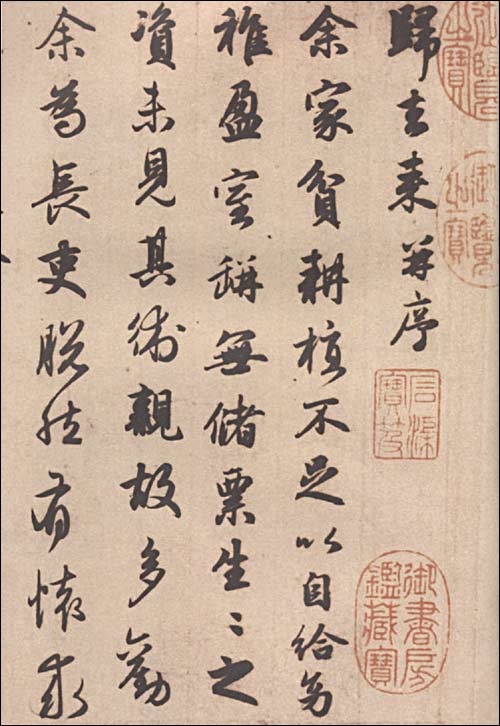 歸去來并序
余家貧耕植不足以自給幼
稚盈室缾無儲粟生〻之
資未見其術親故多勸
余為長吏脫然有懷求
御覽之寶
石渠寶笈
御書房鑑藏寶